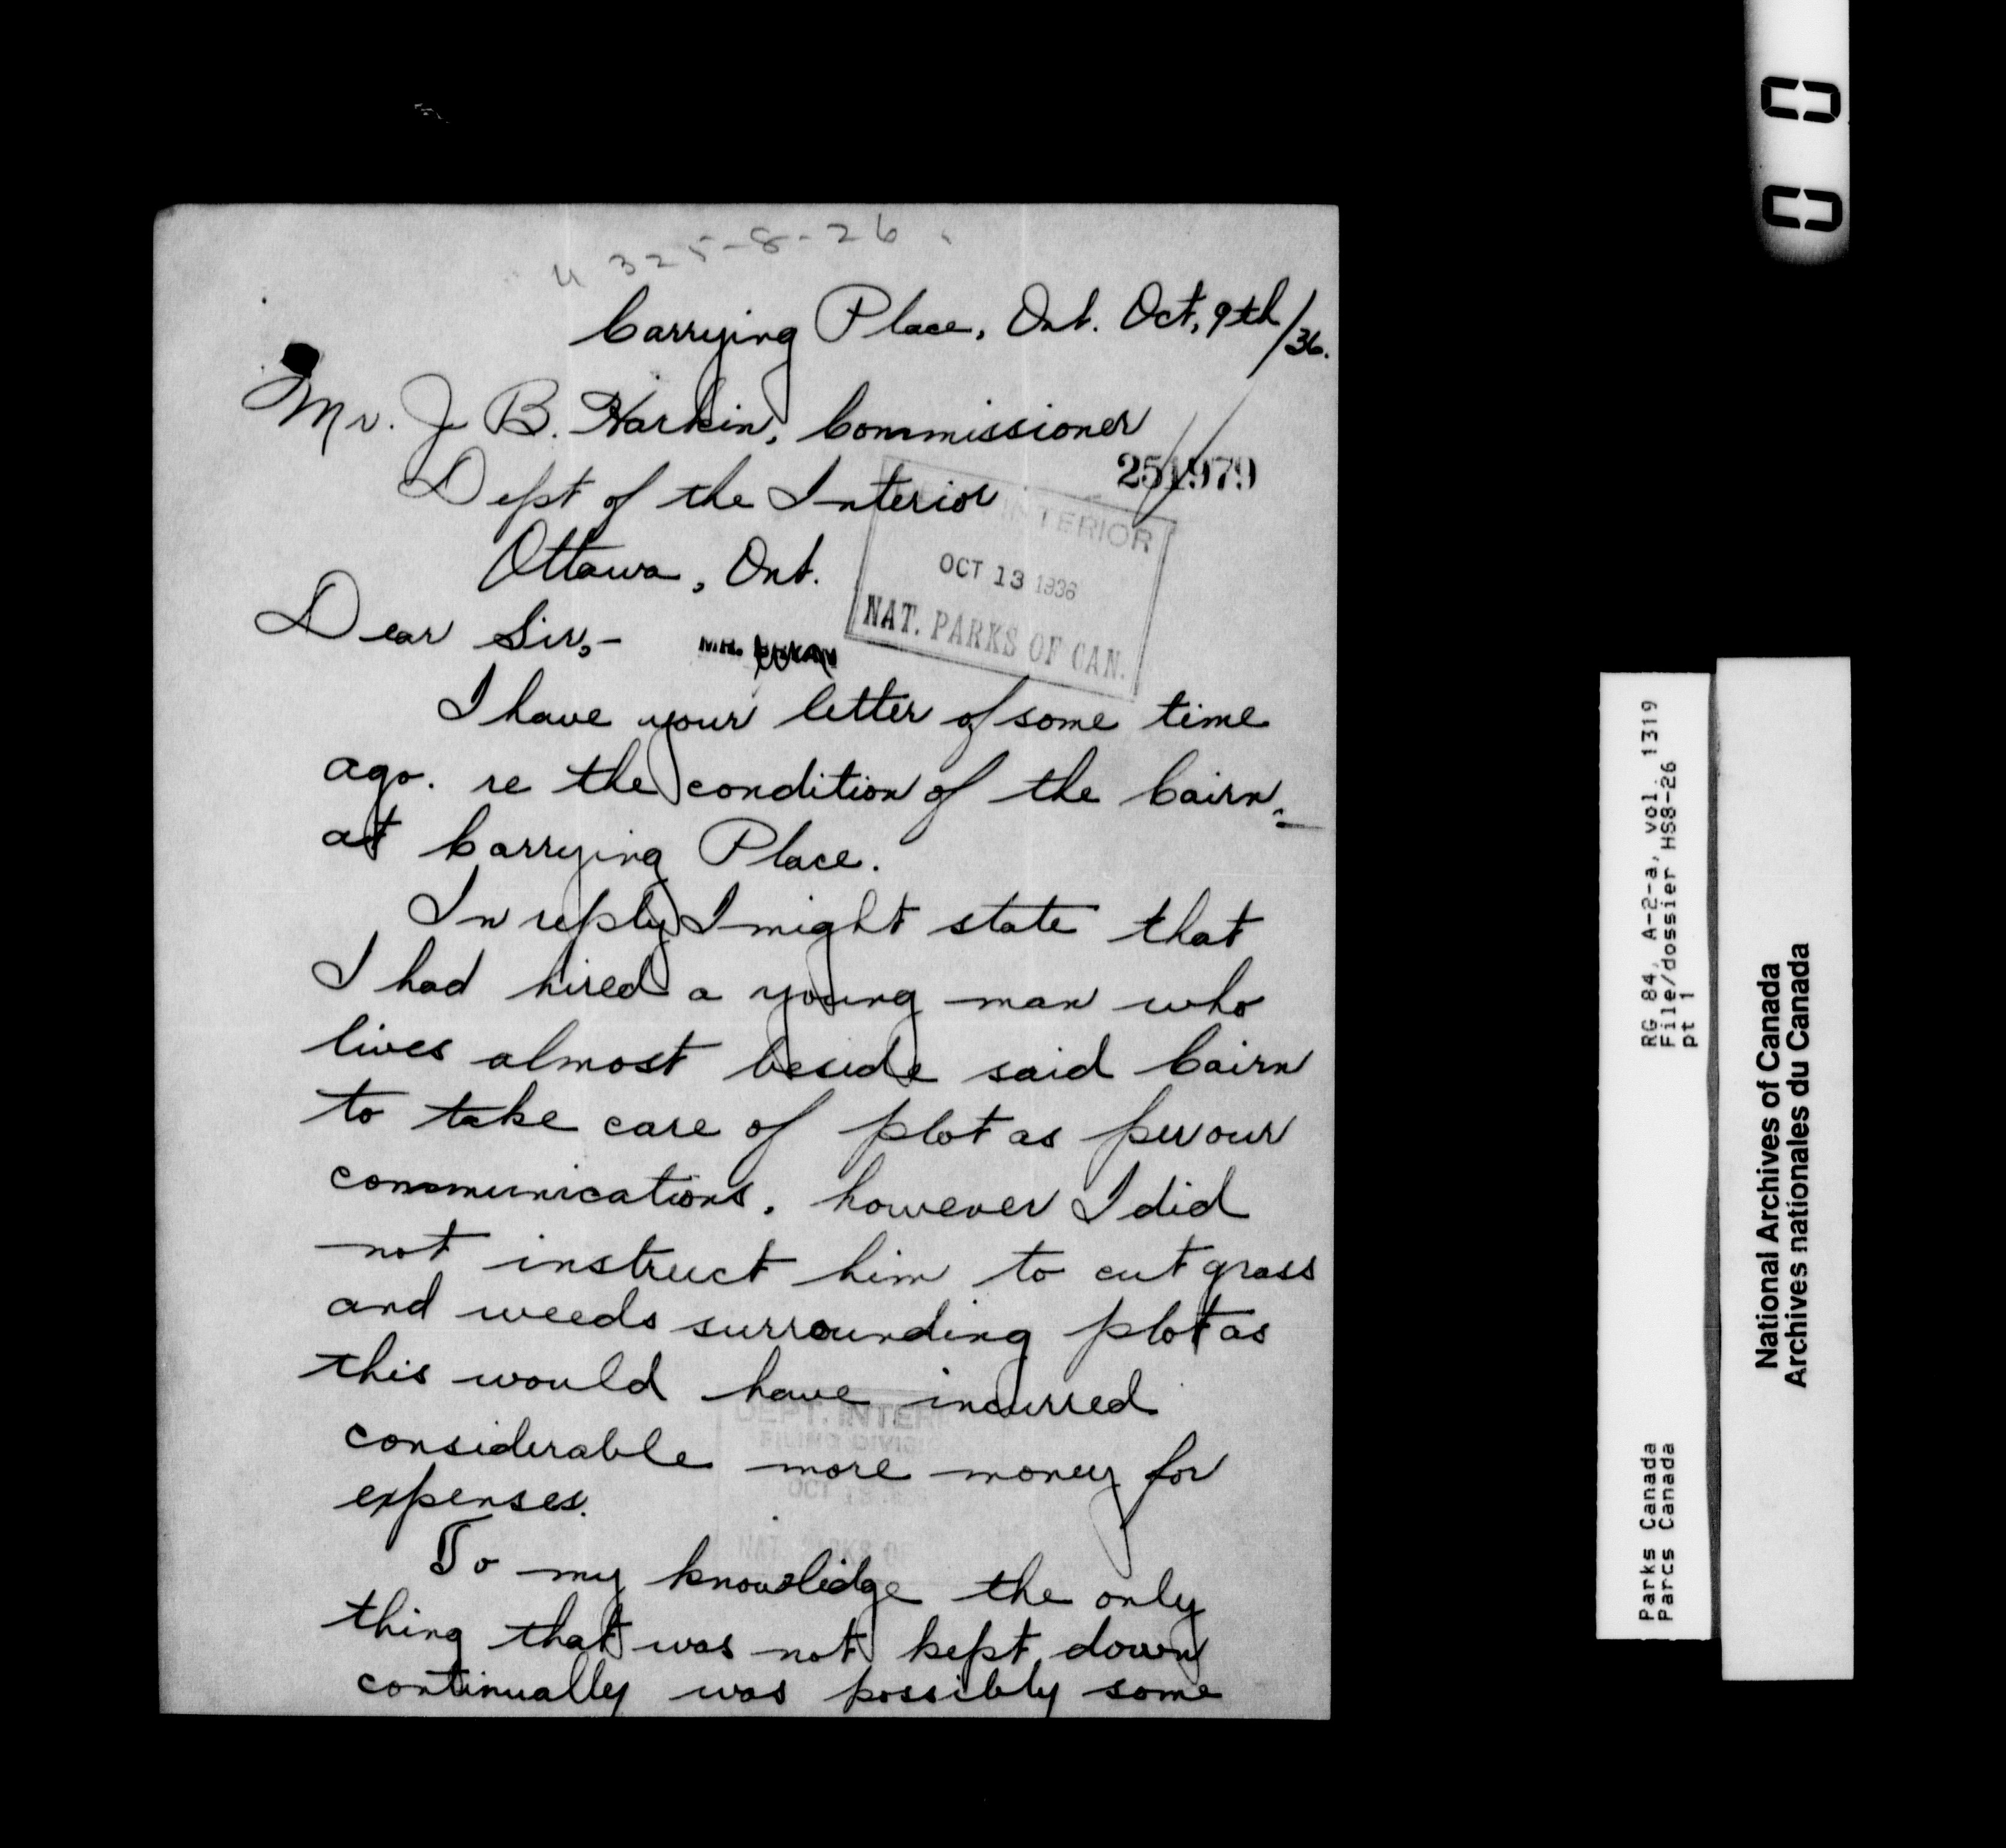 U 325-8-26
Carrying Place, Ont. Oct, 9th/36.
Mr. J. B. Harkin, Commissioner
251979
Dept of the Interior
INTERIOR
Ottawa, Ont.
OCT 13 1936
NAT. PARKS OF CAN.
Dear Sir,-
MR.
I have your letter of some time
ago. re the condition of the Cairn.
at Carrying Place.
In reply I might state that
I had hired a young man who
lives almost beside said Cairn
to take care of plot as per our
communications. however I did
not instruct him to cut grass
and weeds surrounding plot as
this would have incurred
DEPT. INTER
FILING DIVISI
considerable more money for
OCT 13
expenses.
NAT. PARKS OF
To my knowlidge the only
thing that was not kept down
continually was possibly some
RG 84, A-2-a, vol. 1319
File/dossier HS8-26
pt 1
Parks Canada
Parcs Canada
National Archives of Canada
Archives nationales du Canada